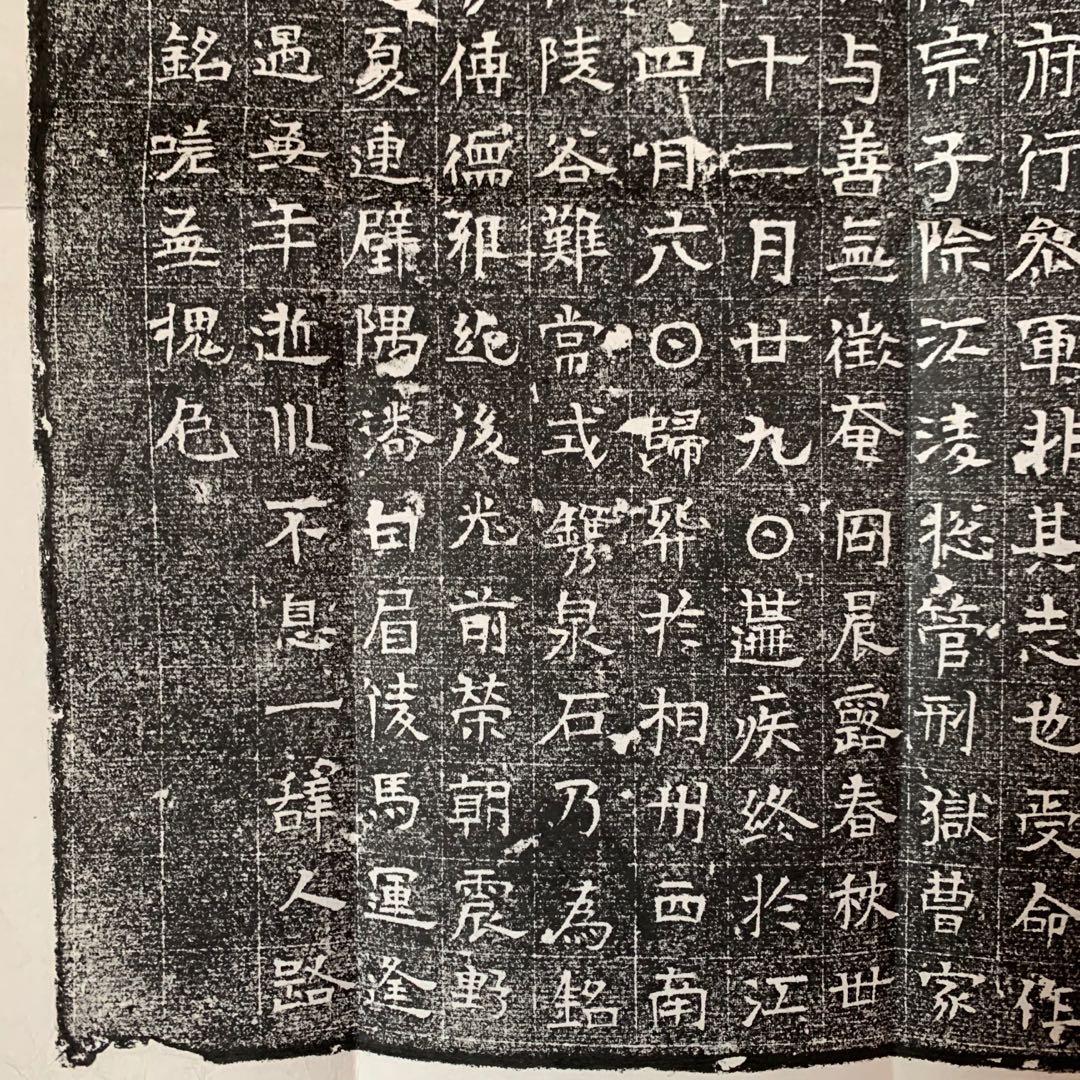 府行叅軍非其志也受命作
宗子除江陵揔管刑獄曹家
与善無徵奄罔晨露春秋卅
十二月廿九日遘疾終於江
四月六日歸葬於相州西南
陵谷難當式鐫泉石乃為銘
傳德雅純後光前榮朝震野
夏連璧隅潘白眉陵馬運逢
遇無年逝川不息一辭人路
銘嗟無槐